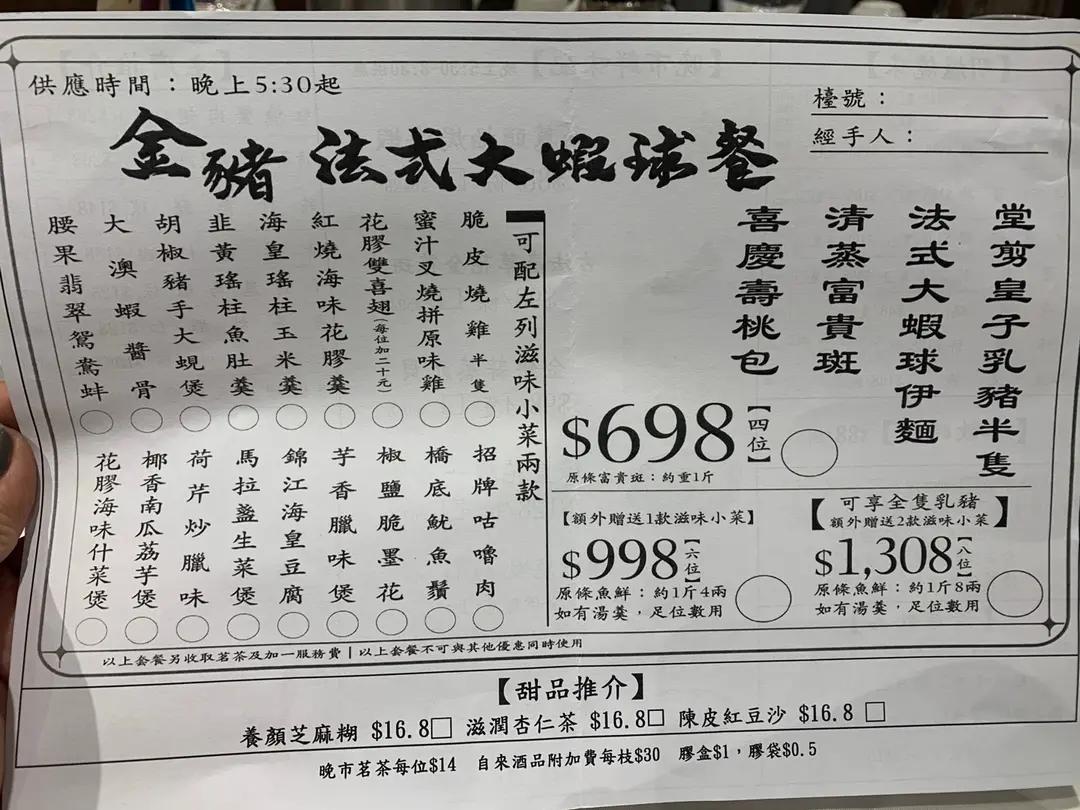 供應時間：晚上5:30起
檯號：
經手人：
金豬 法式大蝦球餐
堂剪皇子乳豬半隻
法式大蝦球伊麵
清蒸富貴斑
喜慶壽桃包
$698【四位】
原條富貴斑：約重1斤
【額外贈送1款滋味小菜】
$998【六位】
原條魚鮮：約1斤4兩
如有湯羹，足位數用
【可享全隻乳豬
額外贈送2款滋味小菜】
$1,308【八位】
原條魚鮮：約1斤8兩
如有湯羹，足位數用
可配左列滋味小菜兩款
脆皮燒雞半隻
蜜汁叉燒拼原味雞
花膠雙喜翅(每位加二十元)
紅燒海味花膠羹
海皇瑤柱玉米羹
韭黃瑤柱魚肚羹
胡椒豬手大蜆煲
大澳蝦醬骨
腰果翡翠鴛鴦蚌
招牌咕嚕肉
橋底魷魚鬚
椒鹽脆墨花
芋香臘味煲
錦江海皇豆腐
馬拉盞生菜煲
荷芹炒臘味
椰香南瓜荔芋煲
花膠海味什菜煲
以上套餐另收取茗茶及加一服務費 | 以上套餐不可與其他優惠同時使用
【甜品推介】
養顏芝麻糊 $16.8□ 滋潤杏仁茶 $16.8□ 陳皮紅豆沙 $16.8 □
晚市茗茶每位$14 自來酒品附加費每枝$30 膠盒$1，膠袋$0.5